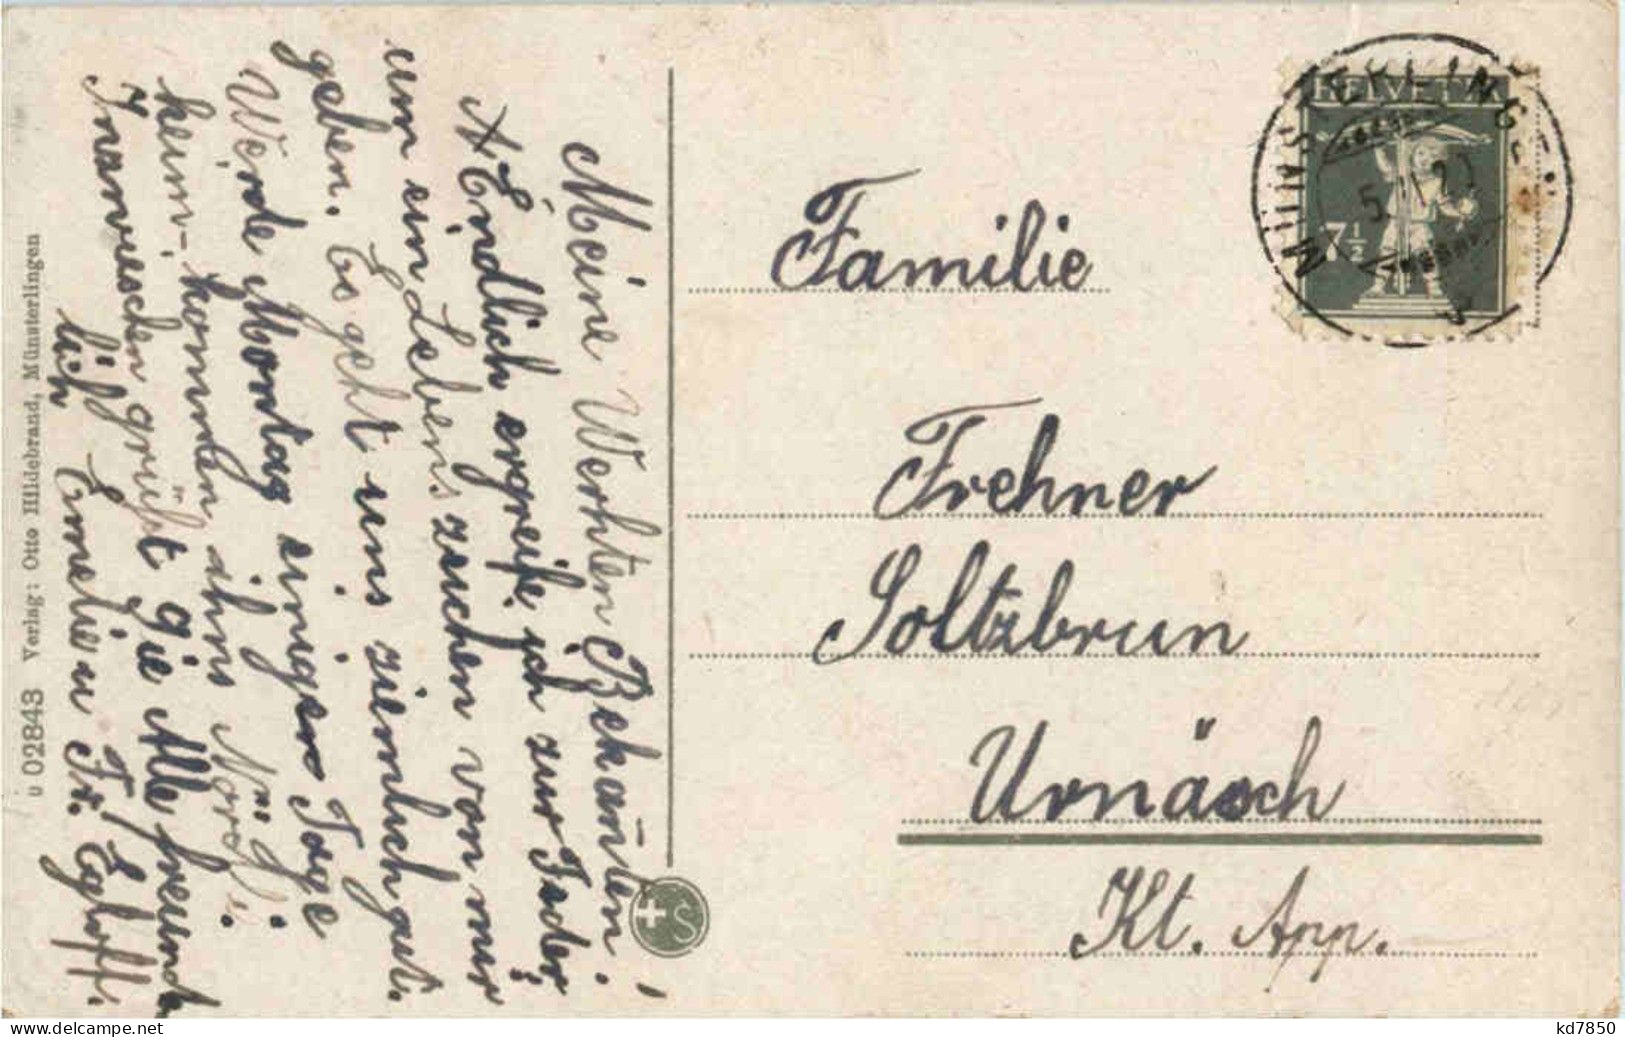 Meine Werhten Bekanten!
Endlich ergreife ich zur Feder
um ein Lebenszeichen von mir
geben. Es geht uns ziemlich gut.
Werde Montag einiger Tage
heim-kommen ihns Nörgli.
Inzwischen grüßt Sie Alle freund
lich Emelie u Fr. Egloff.
ü 02843 Verlag: Otto Hildebrand, Münsterlingen
S
HELVETIA
7½
MÜNSTERLINGEN
Familie
Frehner
Soltzbrun
Urnäsch
Kt. App.
delcampe.net
kd7850